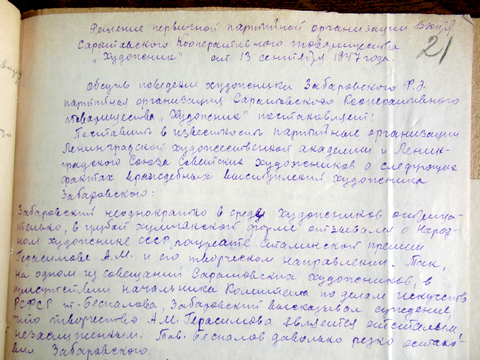 Решение первичной партийной организации ВКП/б/
Саратовского Кооперативного товарищества
"Художник" от 13 сентября 1947 года.
21
Обсудив поведение художника Забаровского Р.Э.
партийная организация Саратовского Кооперативного
товарищества "Художник" постановляет:
Поставить в известность партийные организации
Ленинградской художественной академии и Ленин-
градского Союза Советских художников о следующих
фактах враждебных выступлений художника
Забаровского:
Забаровский неоднократно в среде художников отрица-
тельно, в грубой хулиганской форме отзывался о Народ-
ном художнике СССР, лауреате сталинской премии
Герасимове А.М. и его творческом направлении. Так,
на одном из совещаний Саратовских художников, в
присутствии начальника Комитета по делам искусств
РСФСР т. Беспалова, Забаровский высказывал суждение,
что творчество А.М. Герасимова является отсталым,
незаслуженным. Тов. Беспалов довольно резко остано-
вил Забаровского.